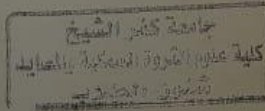 جامعة كفر الشيخ
كلية علوم الثروة السمكية والمصايد
شئون